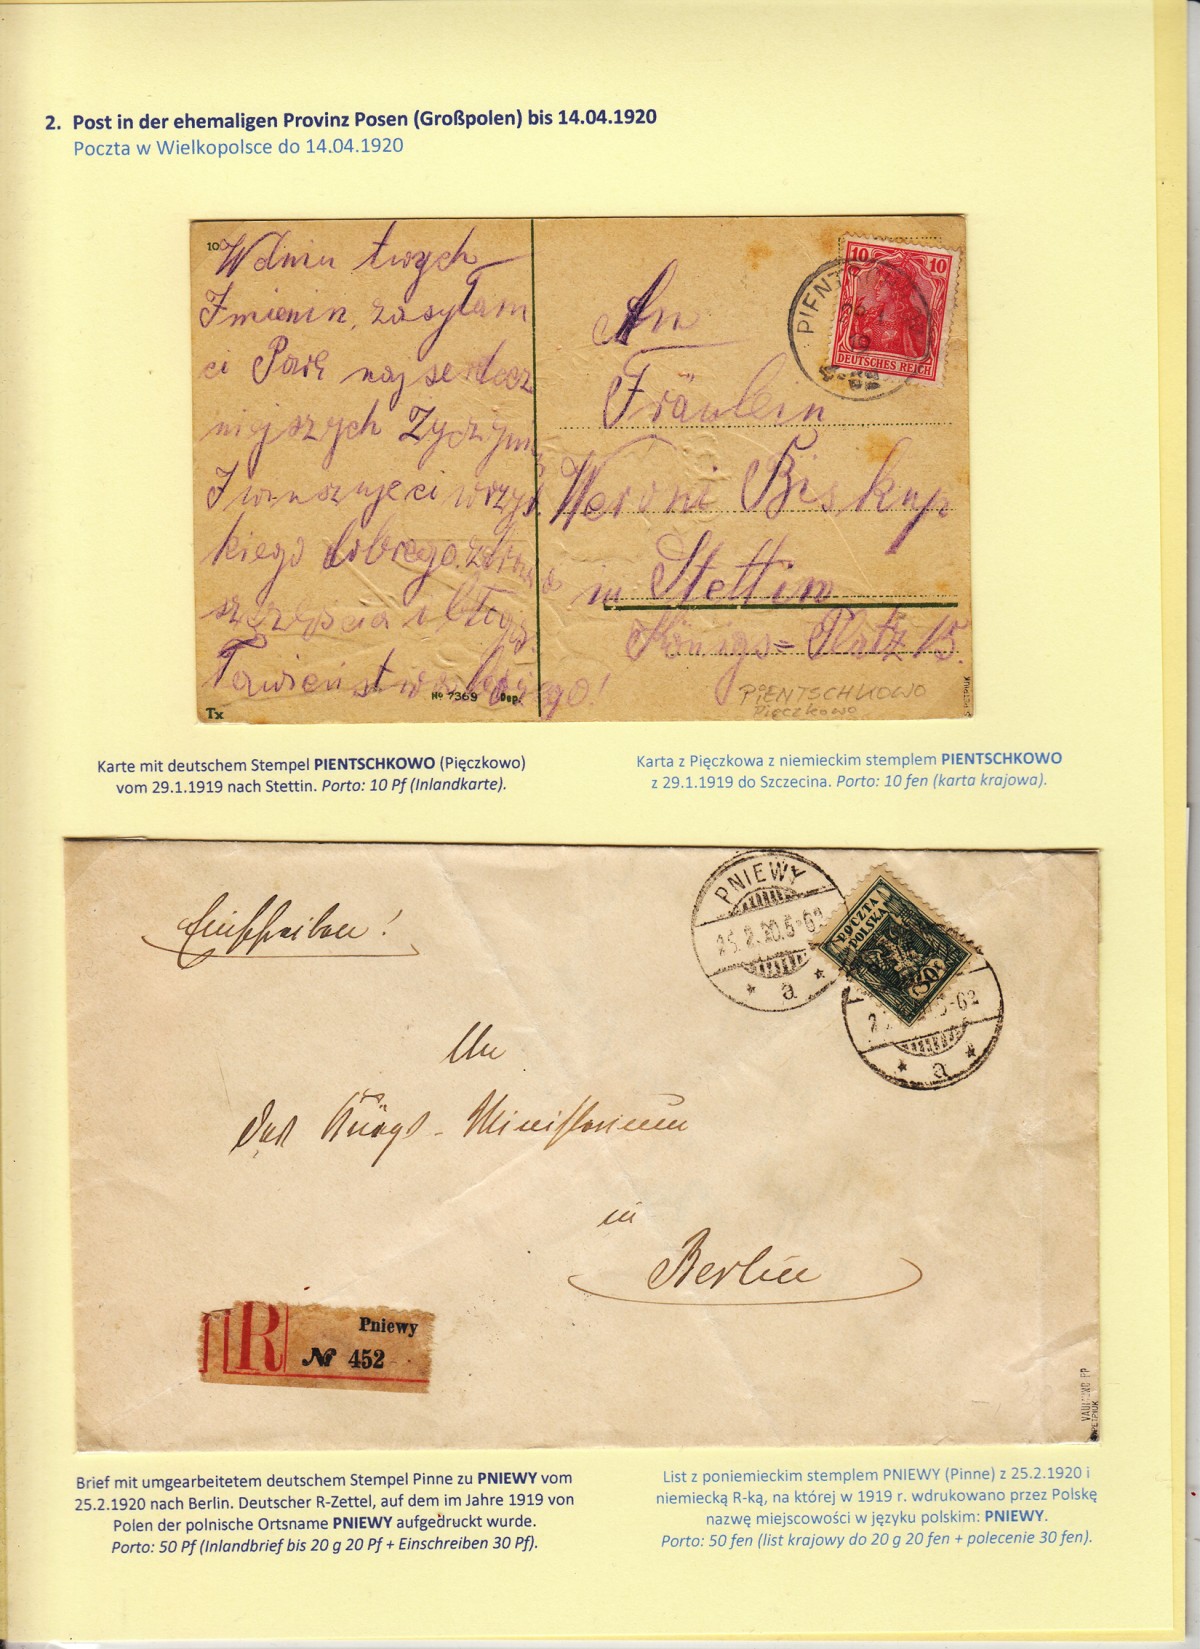 2. Post in der ehemaligen Provinz Posen (Großpolen) bis 14.04.1920
Poczta w Wielkopolsce do 14.04.1920
100
W dniu twych
Imienin, zasyłam
ci Parę najserdecz
niejszych Życzyń
I winszuje ci wrzys
kiego dobrego zdrow
szczęścia i błog
Tx
№ 7369 Dep.
10 10
DEUTSCHES REICH
PIENT
An
Fräulein
Weroni Biskup
in Stettin
Königs=Platz 15.
PIENTSCHKOWO
Pięczkowo
Karte mit deutschem Stempel PIENTSCHKOWO (Pięczkowo)
vom 29.1.1919 nach Stettin. Porto: 10 Pf (Inlandkarte).
Karta z Pięczkowa z niemieckim stemplem PIENTSCHKOWO
z 29.1.1919 do Szczecina. Porto: 10 fen (karta krajowa).
Einschreiben!
PNIEWY
25.2.20.5-6
* a *
POCZTA
POLSKA
50
* a *
An
das Kriegs-Ministerium
in
Berlin
R
Pniewy
№ 452
Brief mit umgearbeitetem deutschem Stempel Pinne zu PNIEWY vom
25.2.1920 nach Berlin. Deutscher R-Zettel, auf dem im Jahre 1919 von
Polen der polnische Ortsname PNIEWY aufgedruckt wurde.
Porto: 50 Pf (Inlandbrief bis 20 g 20 Pf + Einschreiben 30 Pf).
List z poniemieckim stemplem PNIEWY (Pinne) z 25.2.1920 i
niemiecką R-ką, na której w 1919 r. wdrukowano przez Polskę
nazwę miejscowości w języku polskim: PNIEWY.
Porto: 50 fen (list krajowy do 20 g 20 fen + polecenie 30 fen).